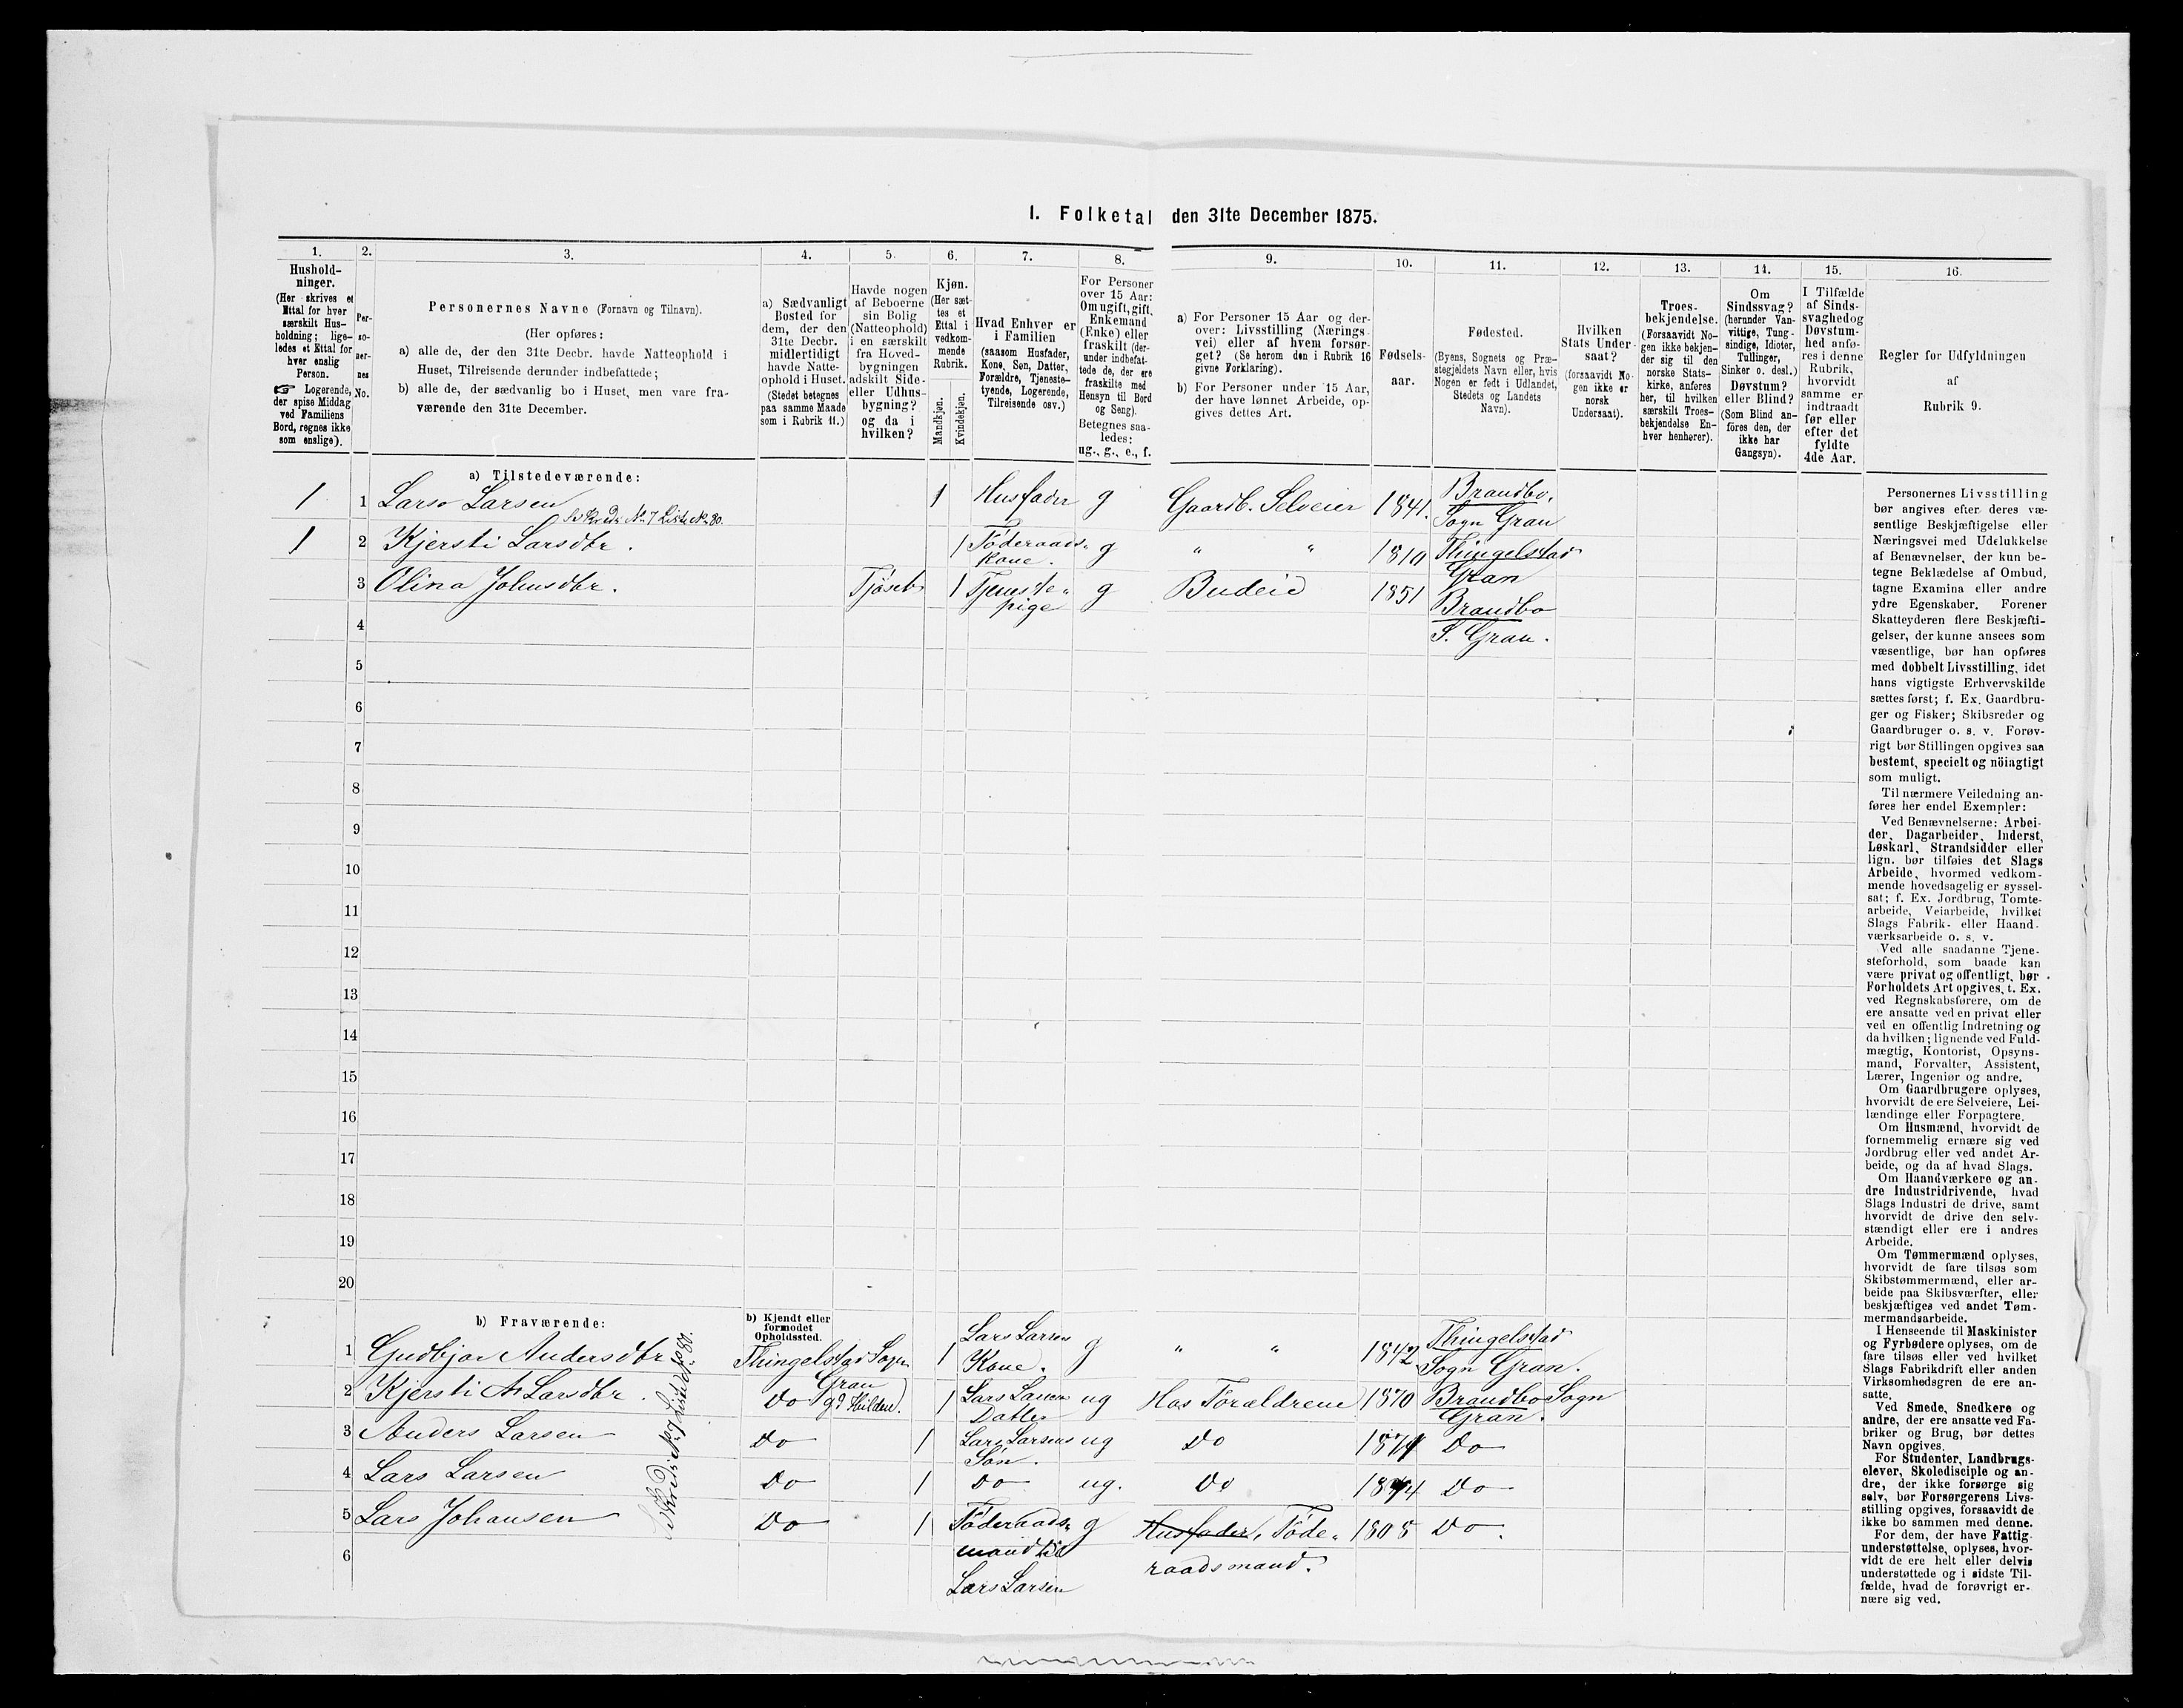 I. Folketal den 31te December 1875.
1.
Hushold-
ninger.
(Her skrives et
Ettal for hver
særskilt Hus-
holdning; lige-
ledes et Ettal for
hver enslig
Person.
☞ Logerende,
der spise Middag
ved Familiens
Bord, regnes ikke
som enslige).
2.
Per-
so-
ner-
nes
No.
3.
Personernes Navne (Fornavn og Tilnavn).
(Her opføres:
a) alle de, der den 31te Decbr. havde Natteophold i
Huset, Tilreisende derunder indbefattede;
b) alle de, der sædvanlig bo i Huset, men vare fra-
værende den 31te December.
4.
a) Sædvanligt
Bosted for
dem, der den
31te Decbr.
midlertidigt
havde Natte-
ophold i Huset.
(Stedet betegnes
paa samme Maade
som i Rubrik 11.)
5.
Havde nogen
af Beboerne
sin Bolig
(Natteophold)
i en særskilt
fra Hoved-
bygningen
adskilt Side-
eller Udhus-
bygning?
og da i
hvilken?
6.
Kjøn.
(Her sæt-
tes et
Ettal i
vedkom-
mende
Rubrik.
Mandkjøn.
Kvindekjøn.
7.
Hvad Enhver er
i Familien
(saasom Husfader,
Kone, Søn, Datter,
Forældre, Tjeneste-
tyende, Logerende,
Tilreisende osv.)
8.
For Personer
over 15 Aar:
Om ugift, gift,
Enkemand
(Enke) eller
fraskilt (der-
under indbefat-
tede de, der ere
fraskilte med
Hensyn til Bord
og Seng).
Betegnes saa-
ledes:
ug., g., e., f.
9.
a) For Personer 15 Aar og der-
over: Livsstilling (Nærings-
vei) eller af hvem forsør-
get? (Se herom den i Rubrik 16
givne Forklaring).
b) For Personer under 15 Aar,
der have lønnet Arbeide, op-
gives dettes Art.
10.
Fødsels-
aar.
11.
Fødested.
(Byens, Sognets og Præ-
stegjeldets Navn eller, hvis
Nogen er født i Udlandet,
Stedets og Landets
Navn).
12.
Hvilken
Stats Under-
saat?
(forsaavidt No-
gen ikke er
norsk
Undersaat).
13.
Troes-
bekjendelse.
(Forsaavidt No-
gen ikke bekjen-
der sig til den
norske Stats-
kirke, anføres
her, til hvilken
særskilt Troes-
bekjendelse En-
hver henhører).
14.
Om
Sindssvag?
(herunder Van-
vittige, Tung-
sindige, Idioter,
Tullinger,
Sinker o. desl.)
Døvstum?
eller Blind?
(Som Blind an-
føres den, der
ikke har
Gangsyn).
15.
I Tilfælde
af Sinds-
svaghed og
Døvstum-
hed anfø-
res i denne
Rubrik,
hvorvidt
samme er
indtraadt
før eller
efter det
fyldte
4de Aar.
16.
Regler for Udfyldningen
af
Rubrik 9.
a) Tilstedeværende:
1 1 Lars Larsen 1 Husfader g Gaardb. Selveier 1841. Brandbo,
Sogn Gran
Kreds No 7 Liste No 80.
1 2 Kjersti Larsdtr. 1 Föderaads- Kone. g " " 1810 Thingelstad
Gran
3 Olina Johnsdtr. 1 Tjeneste- pige g Budeie 1851 Brandbo
S. Gran.
4
5
6
7
8
9
10
11
12
13
14
15
16
17
18
19
20
b) Fraværende:
b) Kjendt eller
formodet
Opholdssted.
1 Gudbjør Andersdtr Thingelstad Sogn Gran 1 Lars Larsens Kone. g " " 1842 Thingelstad
Sogn Gran.
2 Kjersti A Larsdtr. Do gd Hilden. 1 Lars Larsens Datter ug Hos Forældrene 1870 Brandbo Sogn
Gran.
3 Anders Larsen Do 1 Lars Larsens Sön. ug Do Do
4 Lars Larsen Do 1 Do ug. Do 1874 Do
5 Lars Johansen Do 1 Föderaads- mand til Lars Larsen g Husfader, Föde-
raadsmand. 1805 Do.
6
Kreds No 7 Liste No 80.
Personernes Livsstilling
bør angives efter deres væ-
sentlige Beskjæftigelse eller
Næringsvei med Udelukkelse
af Benævnelser, der kun be-
tegne Beklædelse af Ombud,
tagne Examina eller andre
ydre Egenskaber. Forener
Skatteyderen flere Beskjæfti-
gelser, der kunne ansees som
væsentlige, bør han opføres
med dobbelt Livsstilling, idet
hans vigtigste Erhvervskilde
sættes først; f. Ex. Gaardbru-
ger og Fisker; Skibsreder og
Gaardbruger o. s. v. Forøv-
rigt bør Stillingen opgives saa
bestemt, specielt og nöiagtigt
som muligt.
Til nærmere Veiledning an-
føres her endel Exempler:
Ved Benævnelserne: Arbei-
der, Dagarbeider, Inderst,
Løskarl, Strandsidder eller
lign. bør tilføies det Slags
Arbeide, hvormed vedkom-
mende hovedsagelig er syssel-
sat; f. Ex. Jordbrug, Tomte-
arbeide, Veiarbeide, hvilket
Slags Fabrik- eller Haand-
værksarbeide o. s. v.
Ved alle saadanne Tjene-
steforhold, som baade kan
være privat og offentligt, bør
Forholdets Art opgives, t. Ex.
ved Regnskabsførere, om de
ere ansatte ved en privat eller
ved en offentlig Indretning og
da hvilken; lignende ved Fuld-
mægtig, Kontorist, Opsyns-
mand, Forvalter, Assistent,
Lærer, Ingeniør og andre.
Om Gaardbrugere oplyses,
hvorvidt de ere Selveiere, Lei-
lændinge eller Forpagtere.
Om Husmænd, hvorvidt de
fornemmelig ernære sig ved
Jordbrug eller ved andet Ar-
beide, og da af hvad Slags.
Om Haandværkere og an-
dre Industridrivende, hvad
Slags Industri de drive, samt
hvorvidt de drive den selv-
stændigt eller ere i andres
Arbeide.
Om Tømmermænd oplyses,
hvorvidt de fare tilsøs som
Skibstømmermænd, eller ar-
beide paa Skibsværfter, eller
beskjæftiges ved andet Tøm-
mermandsarbeide.
I Henseende til Maskinister
og Fyrbødere oplyses, om de
fare tilsøs eller ved hvilket
Slags Fabrikdrift eller anden
Virksomhedsgren de ere an-
satte.
Ved Smede, Snedkere og
andre, der ere ansatte ved Fa-
briker og Brug, bør dettes
Navn opgives.
For Studenter, Landbrugs-
elever, Skoledisciple og an-
dre, der ikke forsørge sig
selv, bør Forsørgerens Livs-
stilling opgives, forsaavidt de
ikke bo sammen med denne.
For dem, der have Fattig-
understøttelse, oplyses, hvor-
vidt de ere helt eller delvis
understøttede og i sidste Til-
fælde, hvad de forøvrigt er-
nære sig ved.